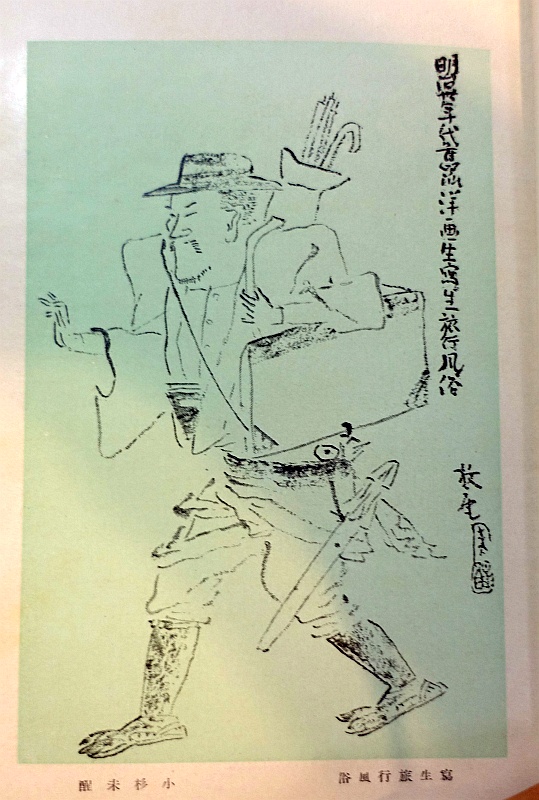 明治卅年代 洋画生寫生旅行風俗
放庵
寫生旅行風俗
小杉未醒